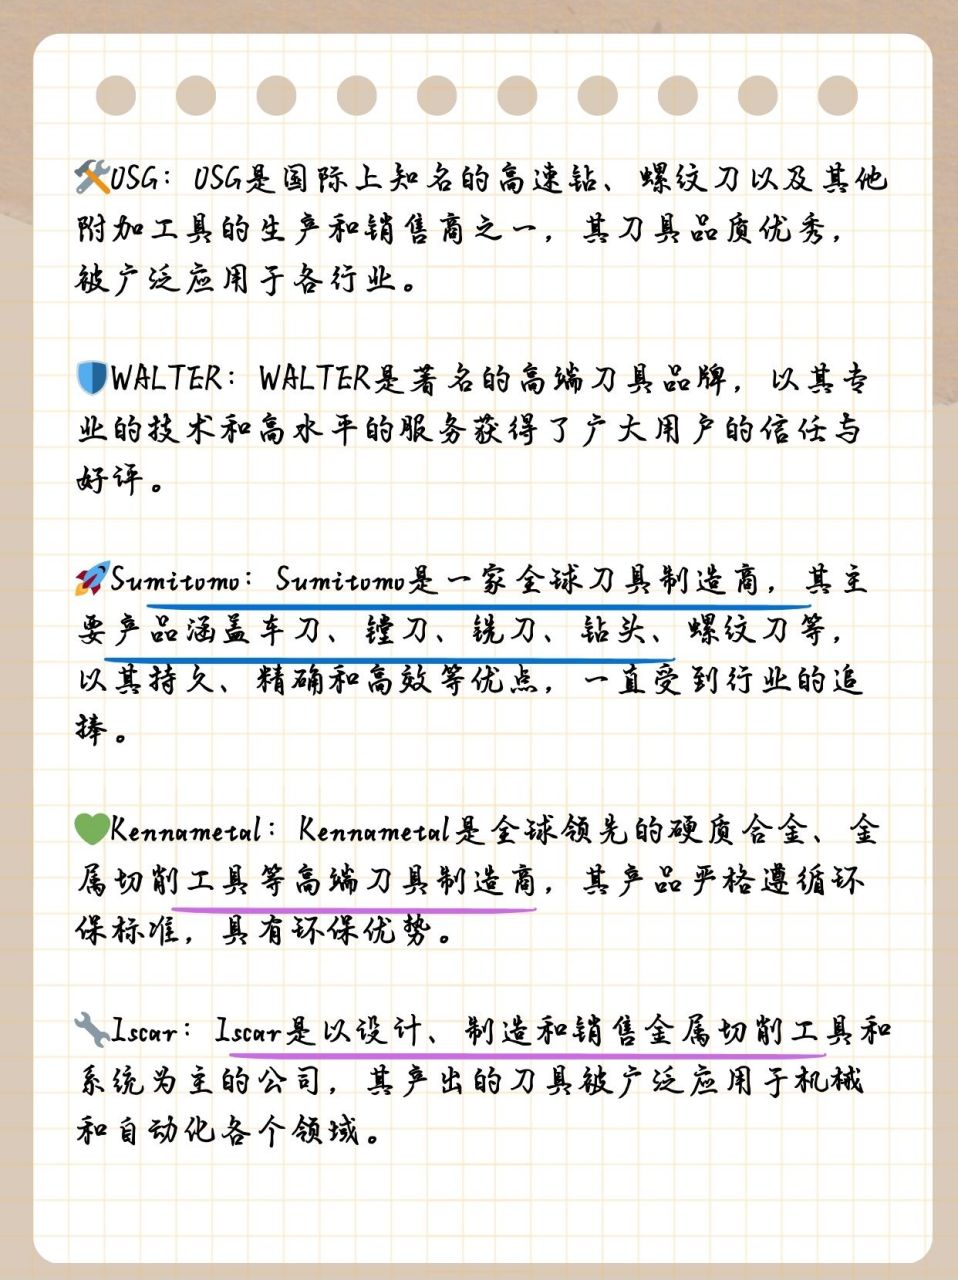 🛠OSG：OSG是国际上知名的高速钻、螺纹刀以及其他
附加工具的生产和销售商之一，其刀具品质优秀，
被广泛应用于各行业。
🛡WALTER：WALTER是著名的高端刀具品牌，以其专
业的技术和高水平的服务获得了广大用户的信任与
好评。
🚀Sumitomo：Sumitomo是一家全球刀具制造商，其主
要产品涵盖车刀、镗刀、铣刀、钻头、螺纹刀等，
以其持久、精确和高效等优点，一直受到行业的追
捧。
💚Kennametal：Kennametal是全球领先的硬质合金、金
属切削工具等高端刀具制造商，其产品严格遵循环
保标准，具有环保优势。
🔧Iscar：Iscar是以设计、制造和销售金属切削工具和
系统为主的公司，其产出的刀具被广泛应用于机械
和自动化各个领域。